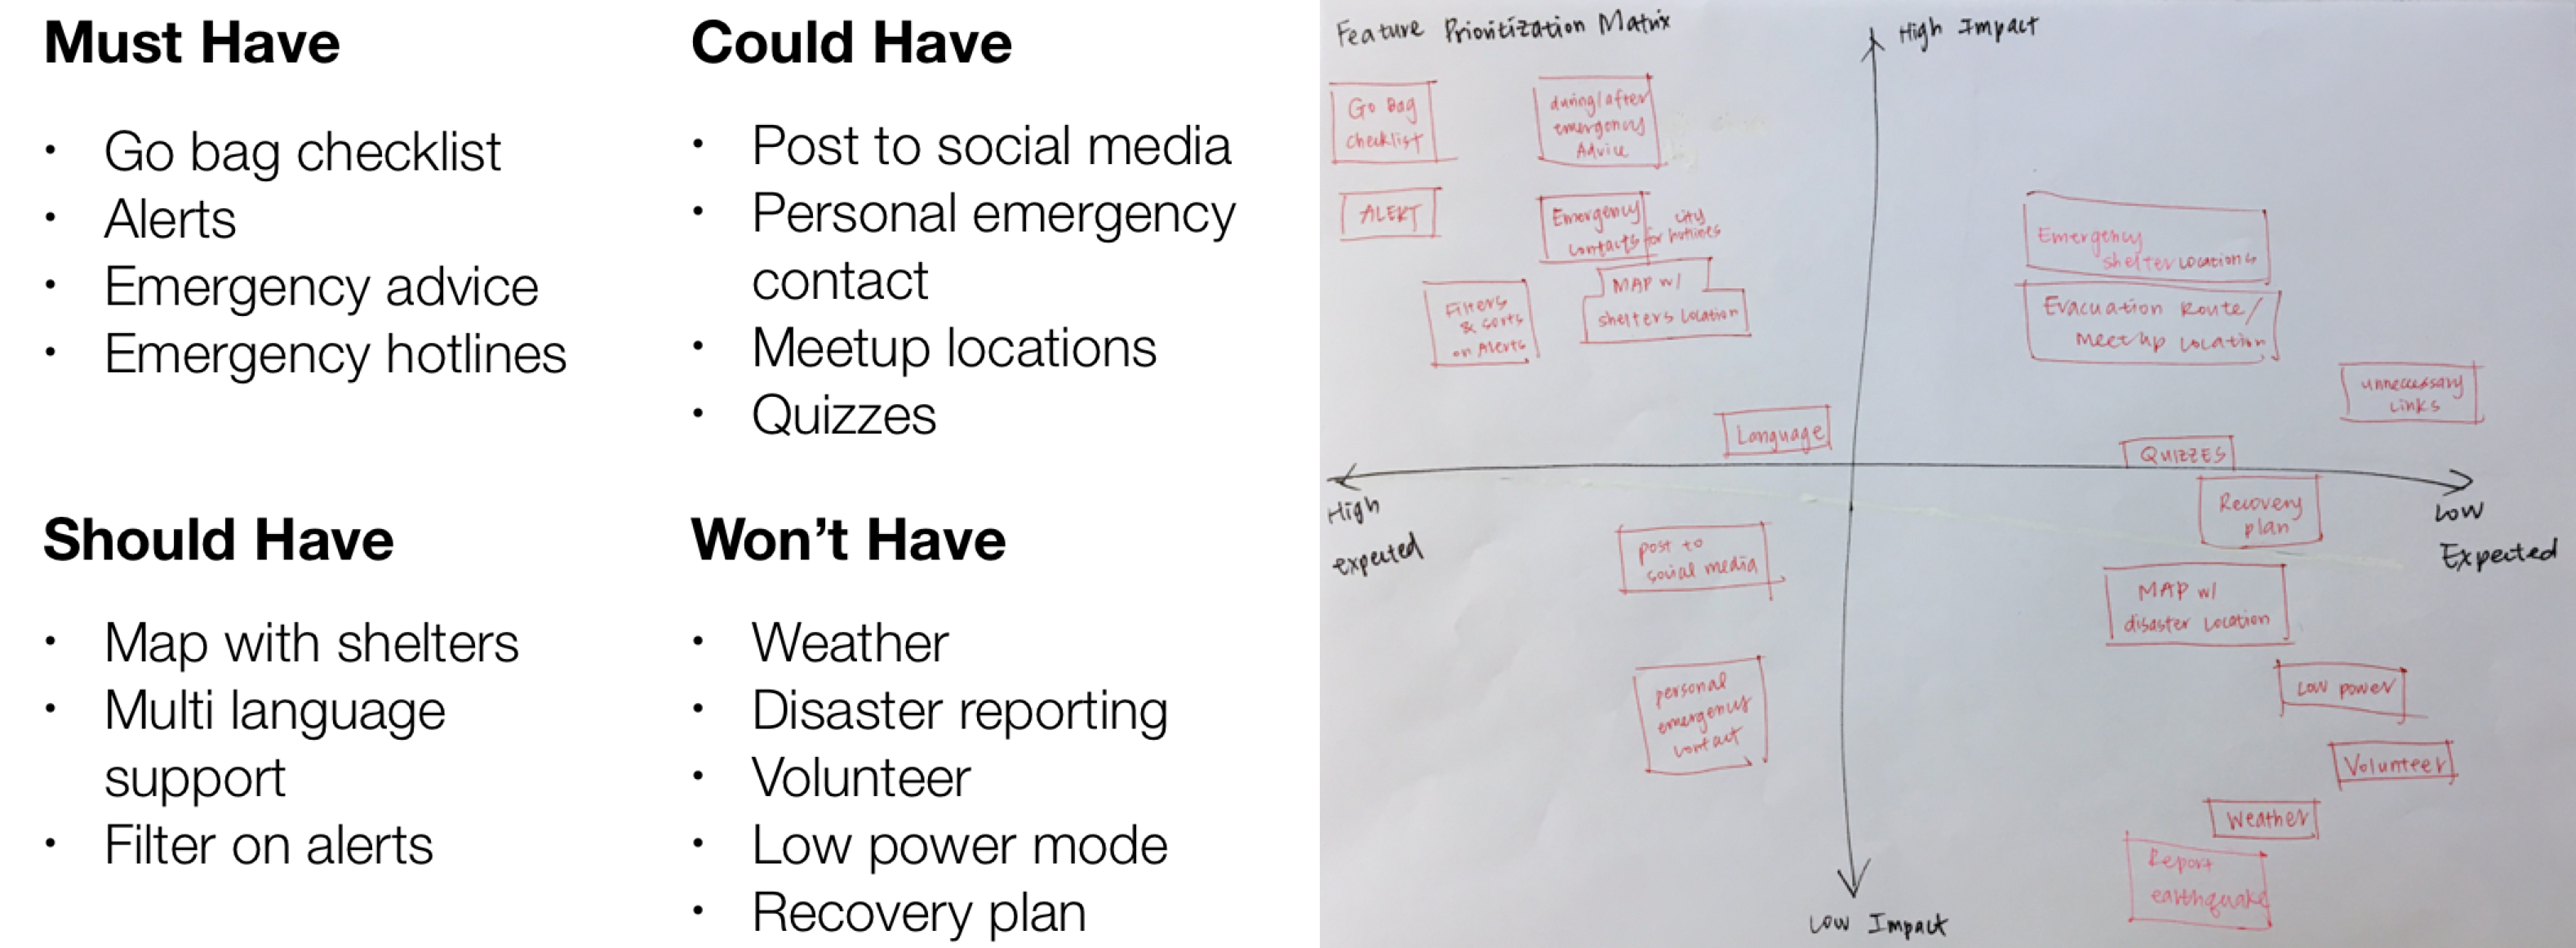 Must Have
• Go bag checklist
• Alerts
• Emergency advice
• Emergency hotlines
Could Have
• Post to social media
• Personal emergency
contact
• Meetup locations
• Quizzes
Should Have
• Map with shelters
• Multi language
support
• Filter on alerts
Won't Have
• Weather
• Disaster reporting
• Volunteer
• Low power mode
• Recovery plan
Feature Prioritization Matrix
High Impact
Go Bag
checklist
during/after
emergency
Advice
ALERT
Emergency
contacts for hotlines
city
Filters
& sorts
on Alerts
MAP w/
shelters Location
Emergency
shelter Locations
Evacuation Route/
Meetup Location
unnecessary
Links
Language
QUIZZES
High
expected
Low
Expected
Recovery
plan
post to
social media
MAP w/
disaster Location
personal
emergency
contact
Low power
Volunteer
Weather
Report
earthquake
Low Impact